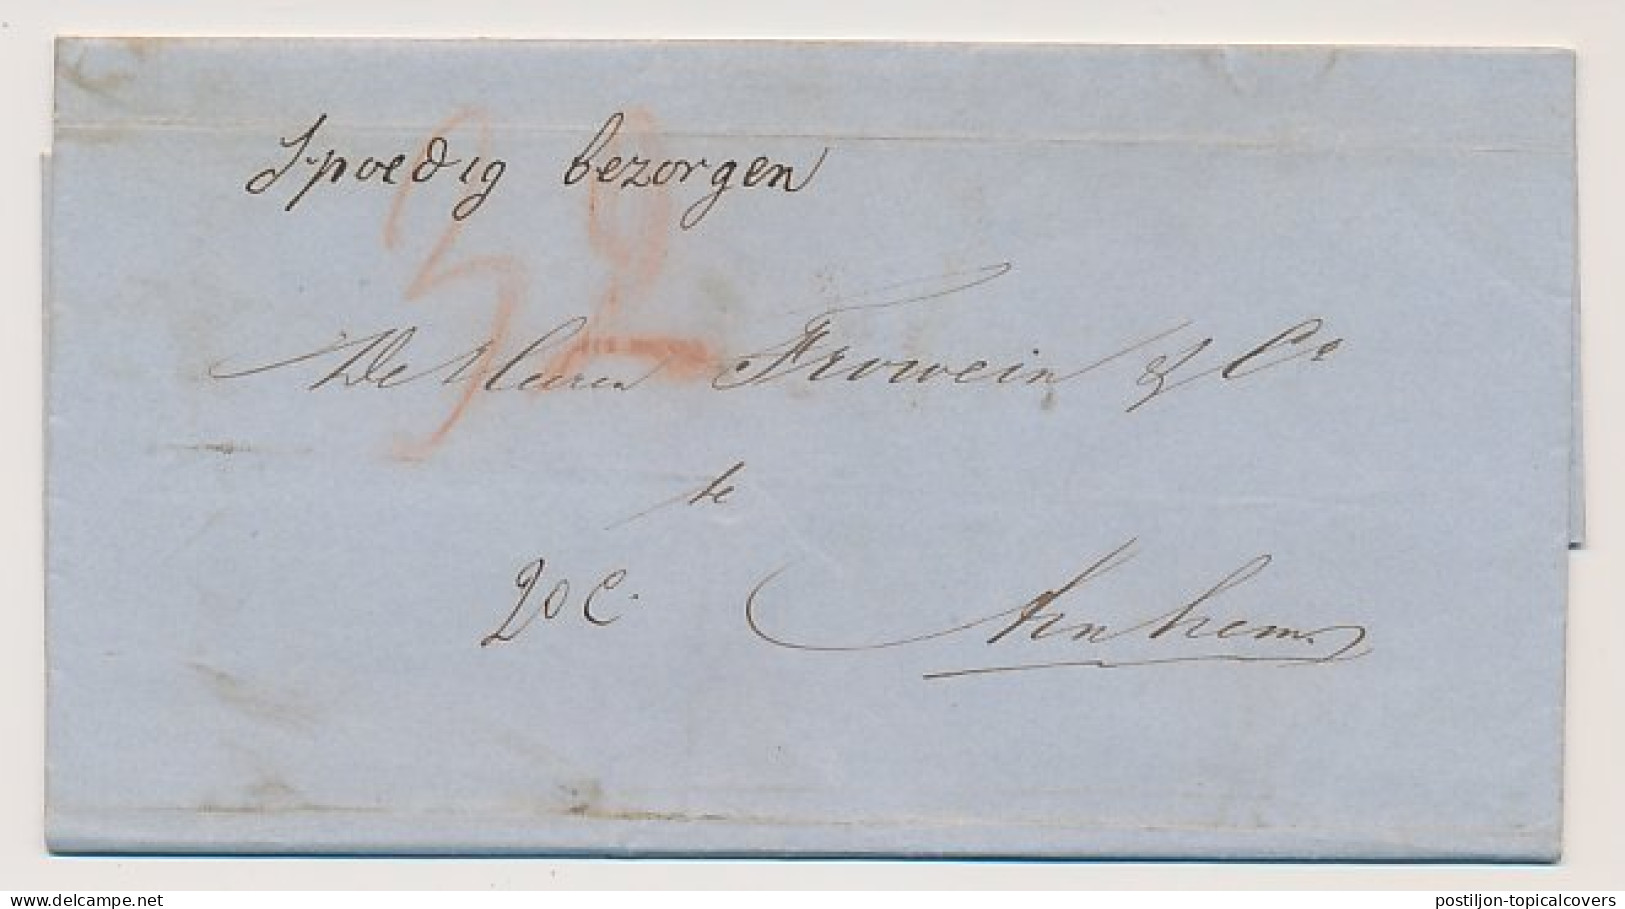 Spoedig bezorgen
De Heeren Frowein & Co
te
20 C.
Arnhem
postiljon-topicalcovers